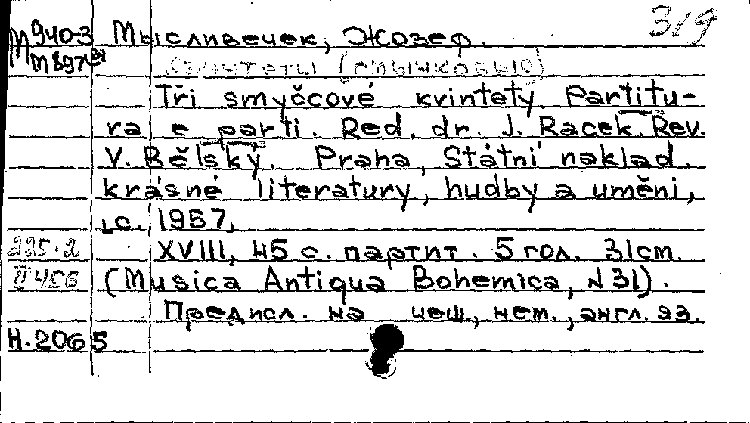 319
М940-3 Мысливечек, Жозеф.
М897 Квинтеты (смычковые)
Tři smyčcové kvintety. Partitu-
ra e parti. Red. dr. J. Racek. Rev.
V. Bělský. Praha, Státní naklad.
krásné literatury, hudby a uměni,
c. 1957,
225-2 XVIII, 45 с. партит. 5 гол. 31см.
II 456 (Musica Antiqua Bohemica, N 31).
Предисл. на чеш., нем., англ. яз.
Н.2065